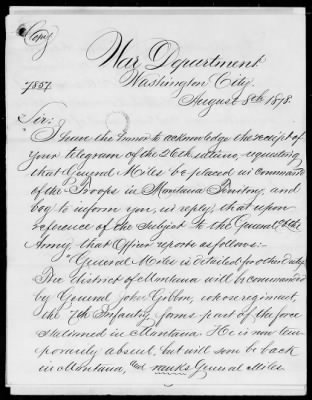 Copy
War Department
7857
Washington City
August 8th 1878.
Sir:
I have the honor to acknowledge the receipt of
your telegram of the 26th ultimo, requesting
that General Miles be placed in command
of the Troops in Montana Territory, and
beg to inform you, in reply, that upon
reference of the subject to the General of the
Army, that Officer reports as follows:-
"General Miles is detailed for other duty.
The district of Montana will be commanded
by General John Gibbon, whose regiment,
the 7th Infantry, forms part of the force
stationed in Montana. He is now tem-
porarily absent, but will soon be back
in Montana, and ranks General Miles